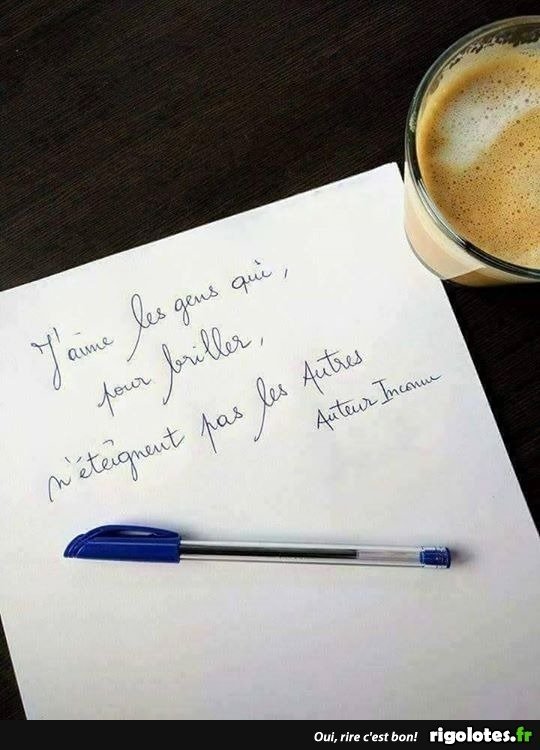 J'aime les gens qui,
pour briller,
n'éteignent pas les Autres
Auteur Inconnu
Oui, rire c'est bon! rigolotes.fr